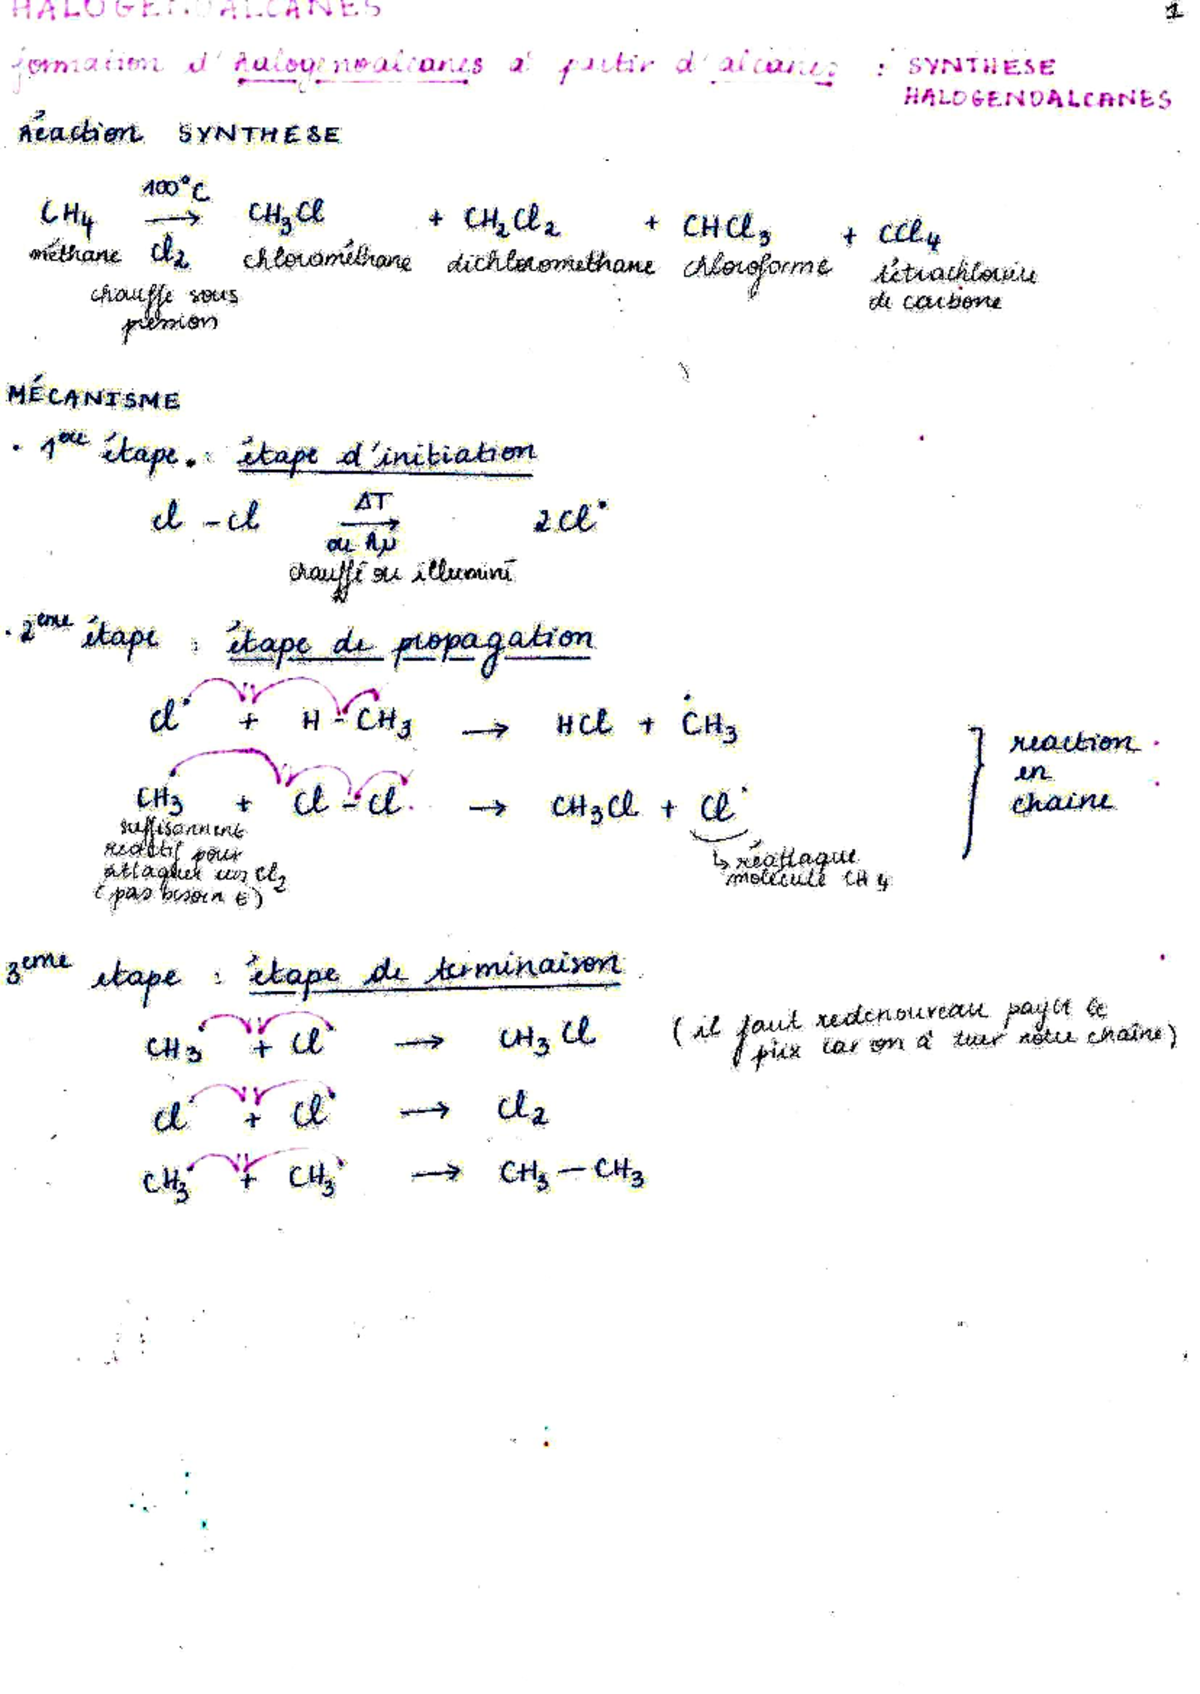 HALOGENOALCANES
1
formation d'halogenoalcanes à partir d'alcanes : SYNTHESE
HALOGENOALCANES
Réaction SYNTHESE
CH4 100°C → Cl2 CH3Cl + CH2Cl2 + CHCl3 + CCl4
méthane chlorométhane dichloromethane chloroforme tétrachlorure de carbone
chauffe sous
pression
MÉCANISME
• 1ère étape : étape d'initiation
Cl - Cl ΔT → ou hν 2Cl•
chauffé ou illuminé
• 2eme étape : étape de propagation
Cl• + H - CH3 → HCl + •CH3
CH3 + Cl - Cl → CH3Cl + Cl•
} reaction
en
chaine
suffisamment
reactif pour
attaquer un Cl2
(pas besoin E)
↳ réattaque
molécule CH4
3eme etape : étape de terminaison
CH3• + Cl• → CH3Cl
(il faut redenouveau payer le
prix car on à tuer notre chaîne)
Cl• + Cl• → Cl2
CH3• + CH3• → CH3 - CH3